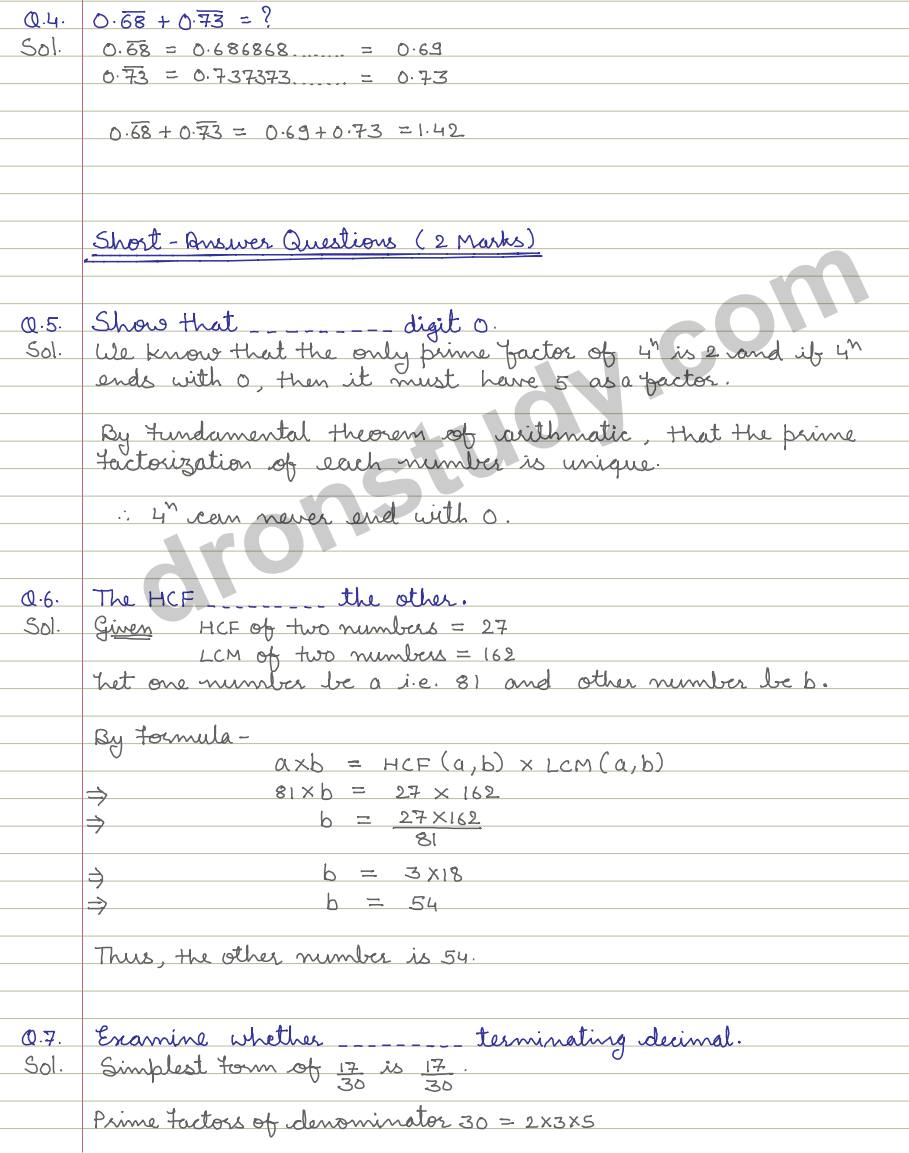 Q.4. 0.6̅8̅ + 0.7̅3̅ = ?
Sol. 0.6̅8̅ = 0.686868....... = 0.69
0.7̅3̅ = 0.737373....... = 0.73
0.6̅8̅ + 0.7̅3̅ = 0.69 + 0.73 = 1.42
Short-Answer Questions (2 Marks)
Q.5. Show that _ _ _ _ _ _ _ _ _ digit 0.
Sol. We know that the only prime factor of 4ⁿ is 2 and if 4ⁿ
ends with 0, then it must have 5 as a factor.
By Fundamental theorem of arithmatic, that the prime
factorization of each number is unique.
∴ 4ⁿ can never end with 0.
Q.6. The HCF _ _ _ _ _ _ _ _ _ the other.
Sol. Given HCF of two numbers = 27
LCM of two numbers = 162
Let one number be a i.e. 81 and other number be b.
By Formula -
a×b = HCF(a,b) × LCM(a,b)
⇒ 81×b = 27 × 162
⇒ b = 27×162/81
⇒ b = 3×18
⇒ b = 54
Thus, the other number is 54.
Q.7. Examine whether _ _ _ _ _ _ _ _ _ terminating decimal.
Sol. Simplest form of 17/30 is 17/30.
Prime factors of denominator 30 = 2×3×5
dronstudy.com